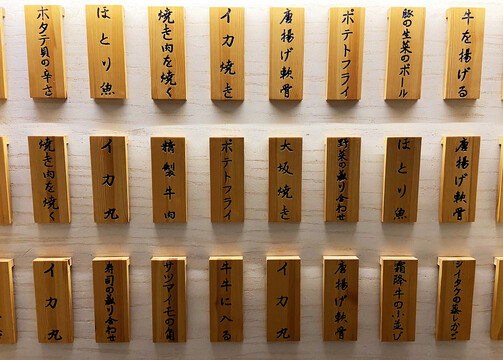 ホタテ貝の辛さ
ほとり魚
焼き肉を焼く
イカ焼き
唐揚げ軟骨
ポテトフライ
豚の生菜のボール
牛を揚げる
焼き肉を焼く
イカ丸
精製牛肉
ポテトフライ
大坂焼き
野菜の盛り合わせ
ほとり魚
唐揚げ軟骨
イカ丸
寿司の盛り合わせ
サツマイモの角
牛牛に入る
イカ丸
唐揚げ軟骨
霜降牛の小並び
シイタケの蒸しかご